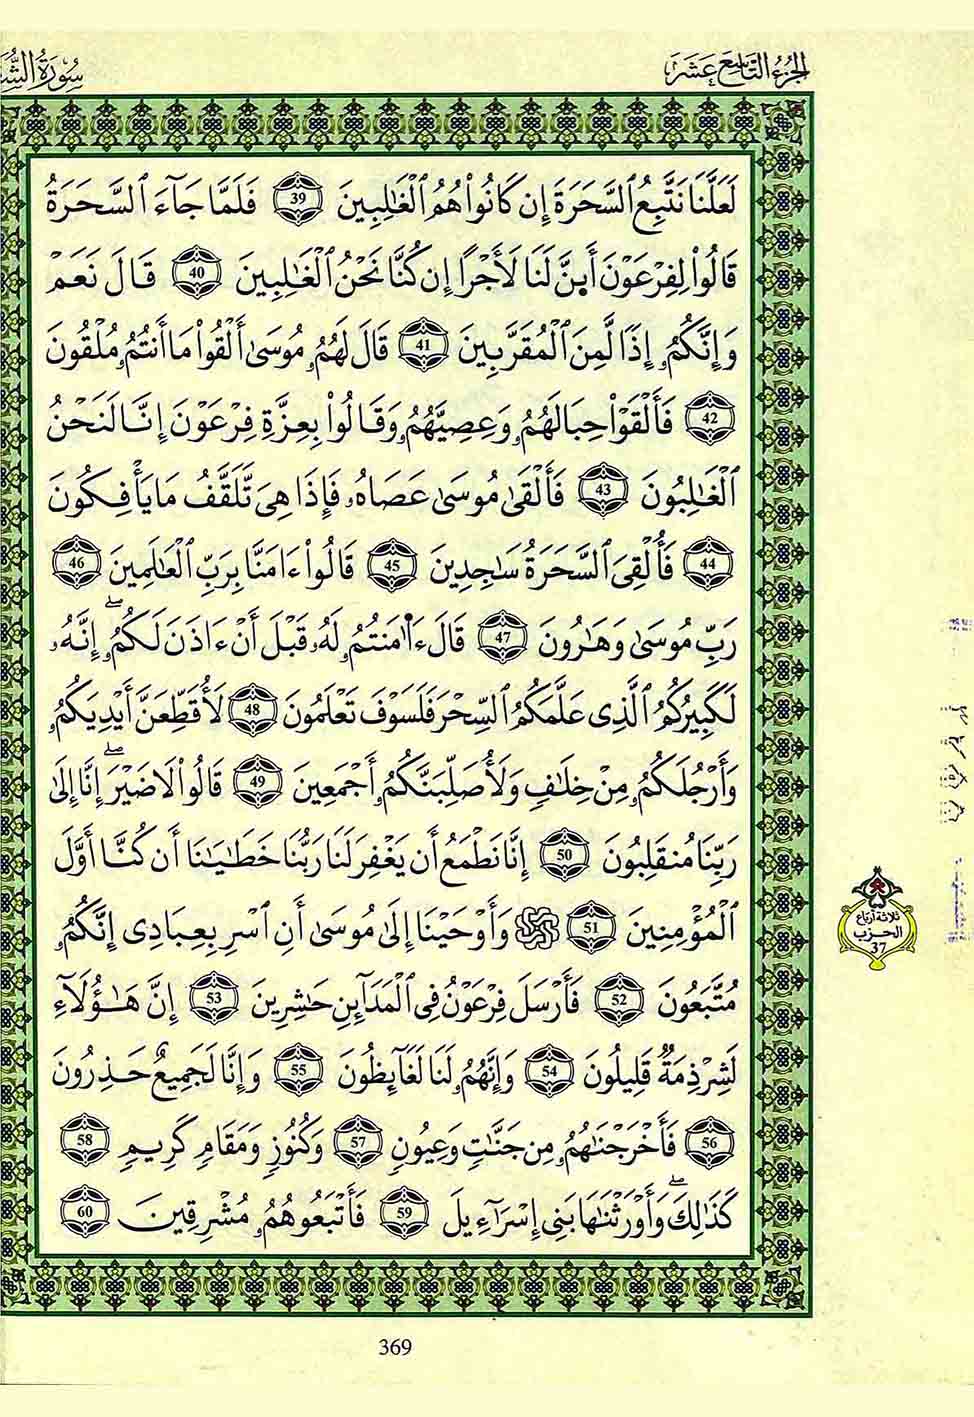 الجُزْءُ التَّاسِعَ عَشَرَ سُورَةُ
لَعَلَّنَا نَتَّبِعُ اُ۬لسَّحَرَةَ إِن كَانُواْ هُمُ اُ۬لْغَٰلِبِينَ 39 فَلَمَّا جَآءَ اَ۬لسَّحَرَةُ
قَالُواْ لِفِرْعَوْنَ أَى۪نَّ لَنَا لَأَجْرًا إِن كُنَّا نَحْنُ اُ۬لْغَٰلِبِينَ 40 قَالَ نَعَمْ
وَإِنَّكُمُۥ إِذًا لَّمِنَ اَ۬لْمُقَرَّبِينَ 41 قَالَ لَهُمُۥ مُوسَىٰ أَلْقُواْ مَا أَنتُمُۥ مُلْقُونَ
42 فَأَلْقَوْاْ حِبَالَهُمُۥ وَعِصِيَّهُمُۥ وَقَالُواْ بِعِزَّةِ فِرْعَوْنَ إِنَّا لَنَحْنُ
اُ۬لْغَٰلِبُونَ 43 فَأَلْقَىٰ مُوسَىٰ عَصَاهُۥ فَإِذَا هِىَ تَّلَقَّفُ مَا يَأْفِكُونَ
44 فَأُلْقِىَ اَ۬لسَّحَرَةُ سَٰجِدِينَ 45 قَالُواْ ءَامَنَّا بِرَبِّ اِ۬لْعَٰلَمِينَ 46
رَبِّ مُوسَىٰ وَهَٰرُونَ 47 قَالَ ءَا۬مَنتُمُۥ لَهُۥ قَبْلَ أَنْ ءَاذَنَ لَكُمُۥۖ إِنَّهُۥ
لَكَبِيرُكُمُ اُ۬لَّذِى عَلَّمَكُمُ اُ۬لسِّحْرَ فَلَسَوْفَ تَعْلَمُونَ 48 لَأُقَطِّعَنَّ أَيْدِيَكُمُۥ
وَأَرْجُلَكُمُۥ مِنْ خِلَٰفٍ وَلَأُصَلِّبَنَّكُمُۥ أَجْمَعِينَ 49 قَالُواْ لَا ضَيْرَۖ إِنَّا إِلَىٰ
رَبِّنَا مُنقَلِبُونَ 50 إِنَّا نَطْمَعُ أَن يَغْفِرَ لَنَا رَبُّنَا خَطَٰيَٰنَا أَن كُنَّا أَوَّلَ
اَ۬لْمُؤْمِنِينَ 51 ۞ وَأَوْحَيْنَا إِلَىٰ مُوسَىٰ أَنِ اِ۪سْرِ بِعِبَادِى إِنَّكُمُۥ
مُتَّبَعُونَ 52 فَأَرْسَلَ فِرْعَوْنُ فِى اِ۬لْمَدَآئِنِ حَٰشِرِينَ 53 إِنَّ هَٰؤُلَآءِ
لَشِرْذِمَةٌ قَلِيلُونَ 54 وَإِنَّهُمُۥ لَنَا لَغَآئِظُونَ 55 وَإِنَّا لَجَمِيعٌ حَذِرُونَ
56 فَأَخْرَجْنَٰهُمُۥ مِن جَنَّٰتٍ وَعِيُونٍ 57 وَكُنُوزٍ وَمَقَامٍ كَرِيمٍ 58
كَذَٰلِكَۖ وَأَوْرَثْنَٰهَا بَنِى إِسْرَآءِيلَ 59 فَأَتْبَعُوهُمُۥ مُشْرِقِينَ 60
ثلاثة أرباع
الحزب
37
369